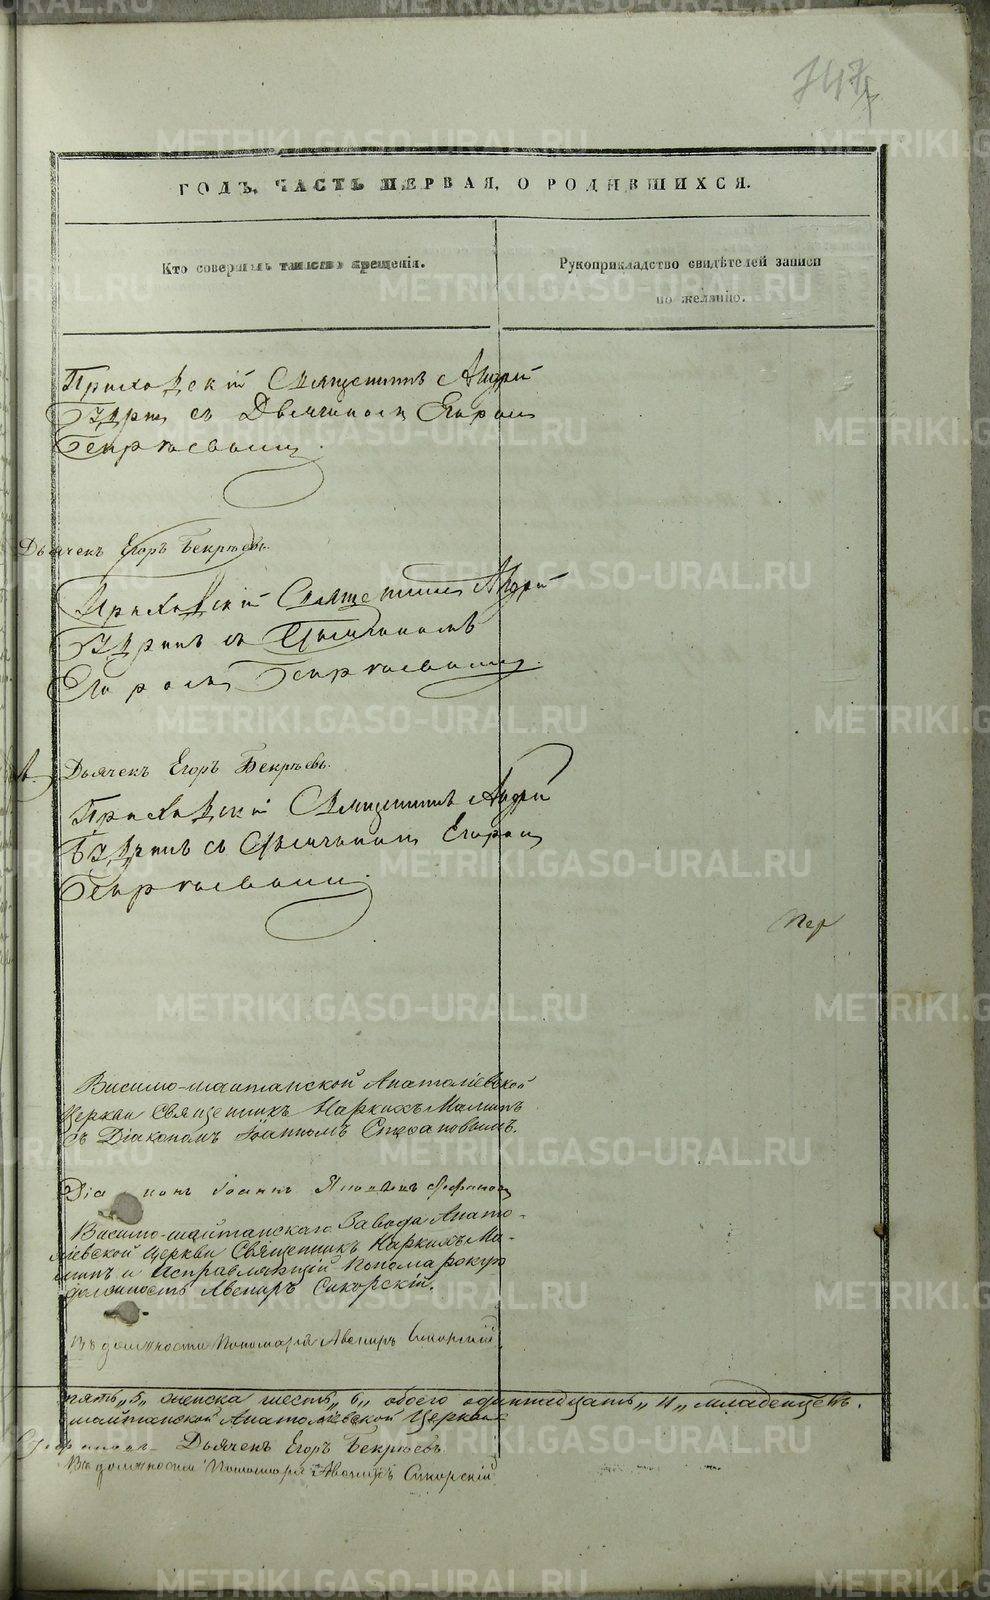 747
ГОДЪ, ЧАСТЬ ПЕРВАЯ, О РОДИВШИХСЯ.
Кто совершалъ таинство крещенія.
Рукоприкладство свидѣтелей записи
по желанію.
Приходскій Священникъ Андрей
съ Дьячикомъ Егоромъ
Бекрѣевымъ
Дьячекъ Егоръ Бекрѣевъ.
Приходскій Священникъ Андрей
съ Дьячикомъ
Егоромъ Бекрѣевымъ.
Дьячекъ Егоръ Бекрѣевъ.
Приходскій Священникъ Андрей
съ Дьячикомъ Егоромъ
Бекрѣевымъ.
Висимо-шайтанской Анатоліевской
Церкви Священникъ Наркизъ Маминъ
съ Діакономъ Іоанномъ Стефановымъ.
Діаконъ Іоаннъ Стефановъ
Висимо-шайтанскаго Завода Анато-
ліевской Церкви Священникъ Наркизъ Ма-
минъ и Исправляющій Пономарскую
должность Авениръ Сикорскій.
Въ должности Пономаря Авениръ Сикорскій
пять „5„ женска шесть „6„ обоего одиннадцать „11„ младенцевъ.
шайтанской Анатоліевской Церкви
Дьячекъ Егоръ Бекрѣевъ
Въ должности Пономаря Авениръ Сикорскій
METRIKI.GASO-URAL.RU